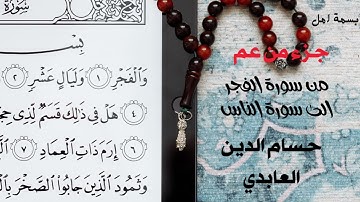 بسمة امل
جزء من عم
من سورة الفجر
الى سورة الناس
حسام الدين
العابدي
سُورَةُ
بِسْ
وَٱلْفَجْرِ ١ وَلَيَالٍ عَشْرٍ ٢
٤ هَلْ فِي ذَٰلِكَ قَسَمٌ لِّذِي حِجْ
٦ إِرَمَ ذَاتِ ٱلْعِمَادِ ٧
وَثَمُودَ ٱلَّذِينَ جَابُوا۟ ٱلصَّخْرَ بِٱلْ